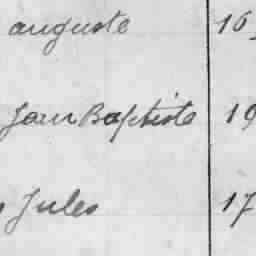 auguste 16
Jean Baptiste 19
Jules 17